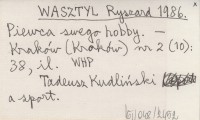 WASZTYL Ryszard 1986.
Piewca swego hobby. —
Kraków (Kraków) nr 2 (10):
38, il. WHP
Tadeusz Kudliński
a sport.